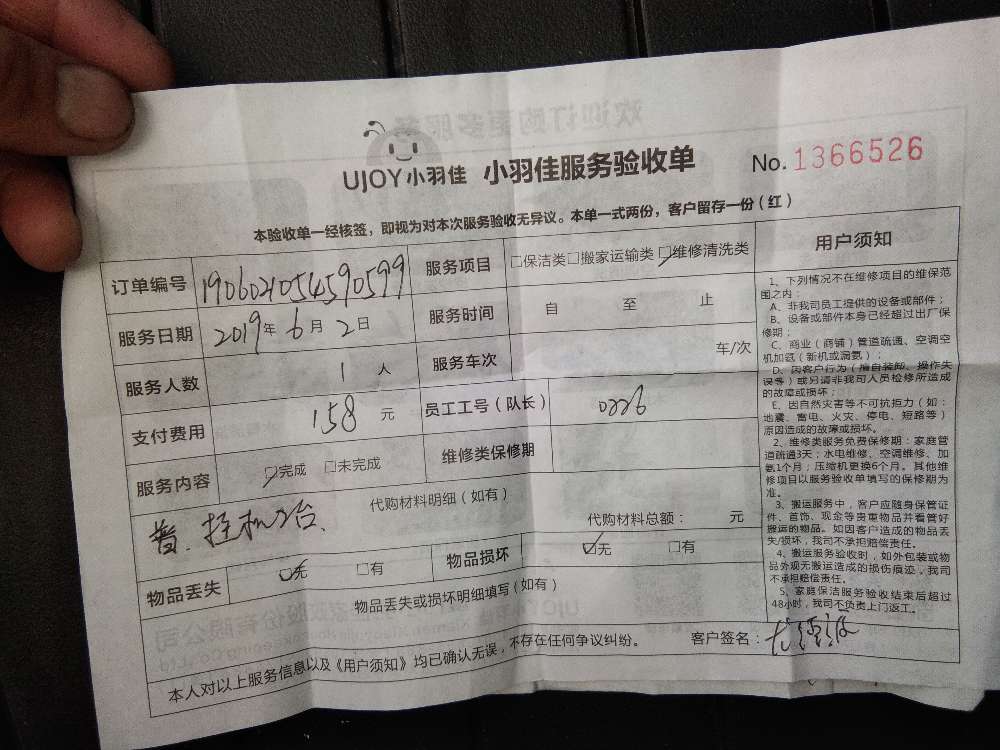 UJOY小羽佳 小羽佳服务验收单 No.1366526
本验收单一经核签，即视为对本次服务验收无异议。本单一式两份，客户留存一份（红）
订单编号 190602105459 0599 服务项目 □保洁类□搬家运输类☑维修清洗类
服务日期 2019年6月2日 服务时间 自 至 止
服务人数 1 人 服务车次 车/次
支付费用 158 元 员工工号（队长） 0226
服务内容 ☑完成 □未完成 维修类保修期
代购材料明细（如有）
普、挂机2台、
代购材料总额： 元
物品丢失 ☑无 □有 物品损坏 ☑无 □有
物品丢失或损坏明细填写（如有）
本人对以上服务信息以及《用户须知》均已确认无误，不存在任何争议纠纷。 客户签名：
用户须知
1、下列情况不在维修项目的维保范
围之内：
A、非我司员工提供的设备或部件；
B、设备或部件本身已经超过出厂保
修期；
C、商业（商铺）管道疏通、空调空
机加氨（新机或漏氨）；
D、因客户行为（擅自装卸、操作失
误等）或另请非我司人员检修所造成
的故障或损坏；
E、因自然灾害等不可抗拒力（如：
地震、雷电、火灾、停电、短路等）
原因造成的故障或损坏。
2、维修类服务免费保修期：家庭管
道疏通3天；水电维修、空调维修、加
氨1个月；压缩机更换6个月。其他维
修项目以服务验收单填写的保修期为
准。
3、搬运服务中，客户应随身保管证
件、首饰、现金等贵重物品并看管好
搬运的物品。如因客户造成的物品丢
失/损坏，我司不承担赔偿责任。
4、搬运服务验收时，如外包装或物
品外观无搬运造成的损伤痕迹，我司
不承担赔偿责任。
5、家庭保洁服务验收结束后超过
48小时，我司不负责上门返工。